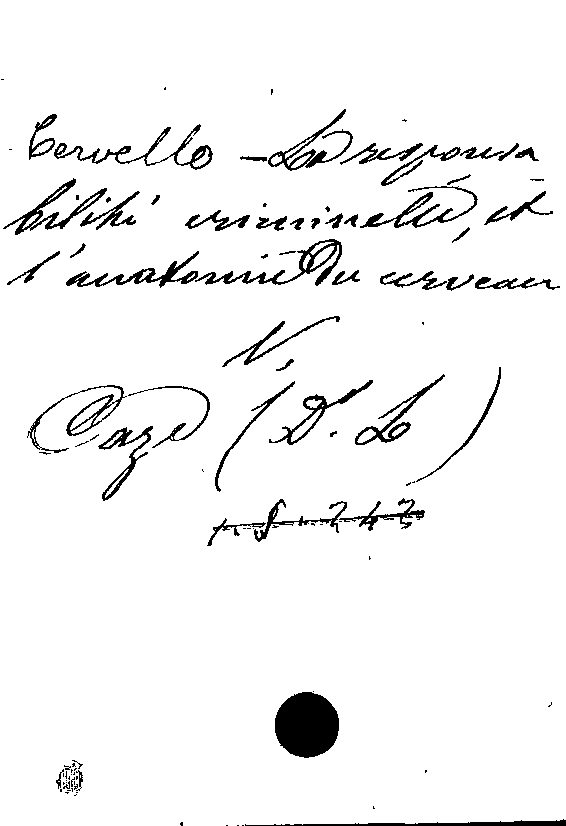 Cervello — La responsa
bilité criminelle, et
l'anatomie du cerveau
V.
Caze (Dr. L)